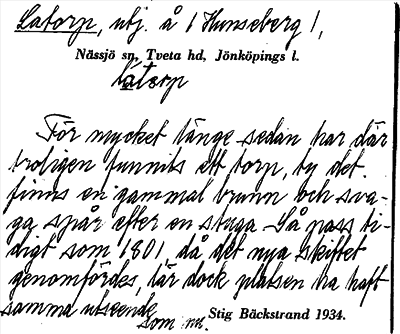 Latorp, utj. å 1 Hunseberg 1,
Nässjö sn, Tveta hd, Jönköpings l.
látorp
För mycket länge sedan har där
troligen funnits ett torp, ty det
finns en gammal brunn och sva-
ga spår efter en stuga. Så pass ti-
digt som 1801, då det nya skiftet
genomfördes, lär dock platsen ha haft
samma utseende
som nu.
Stig Bäckstrand 1934.